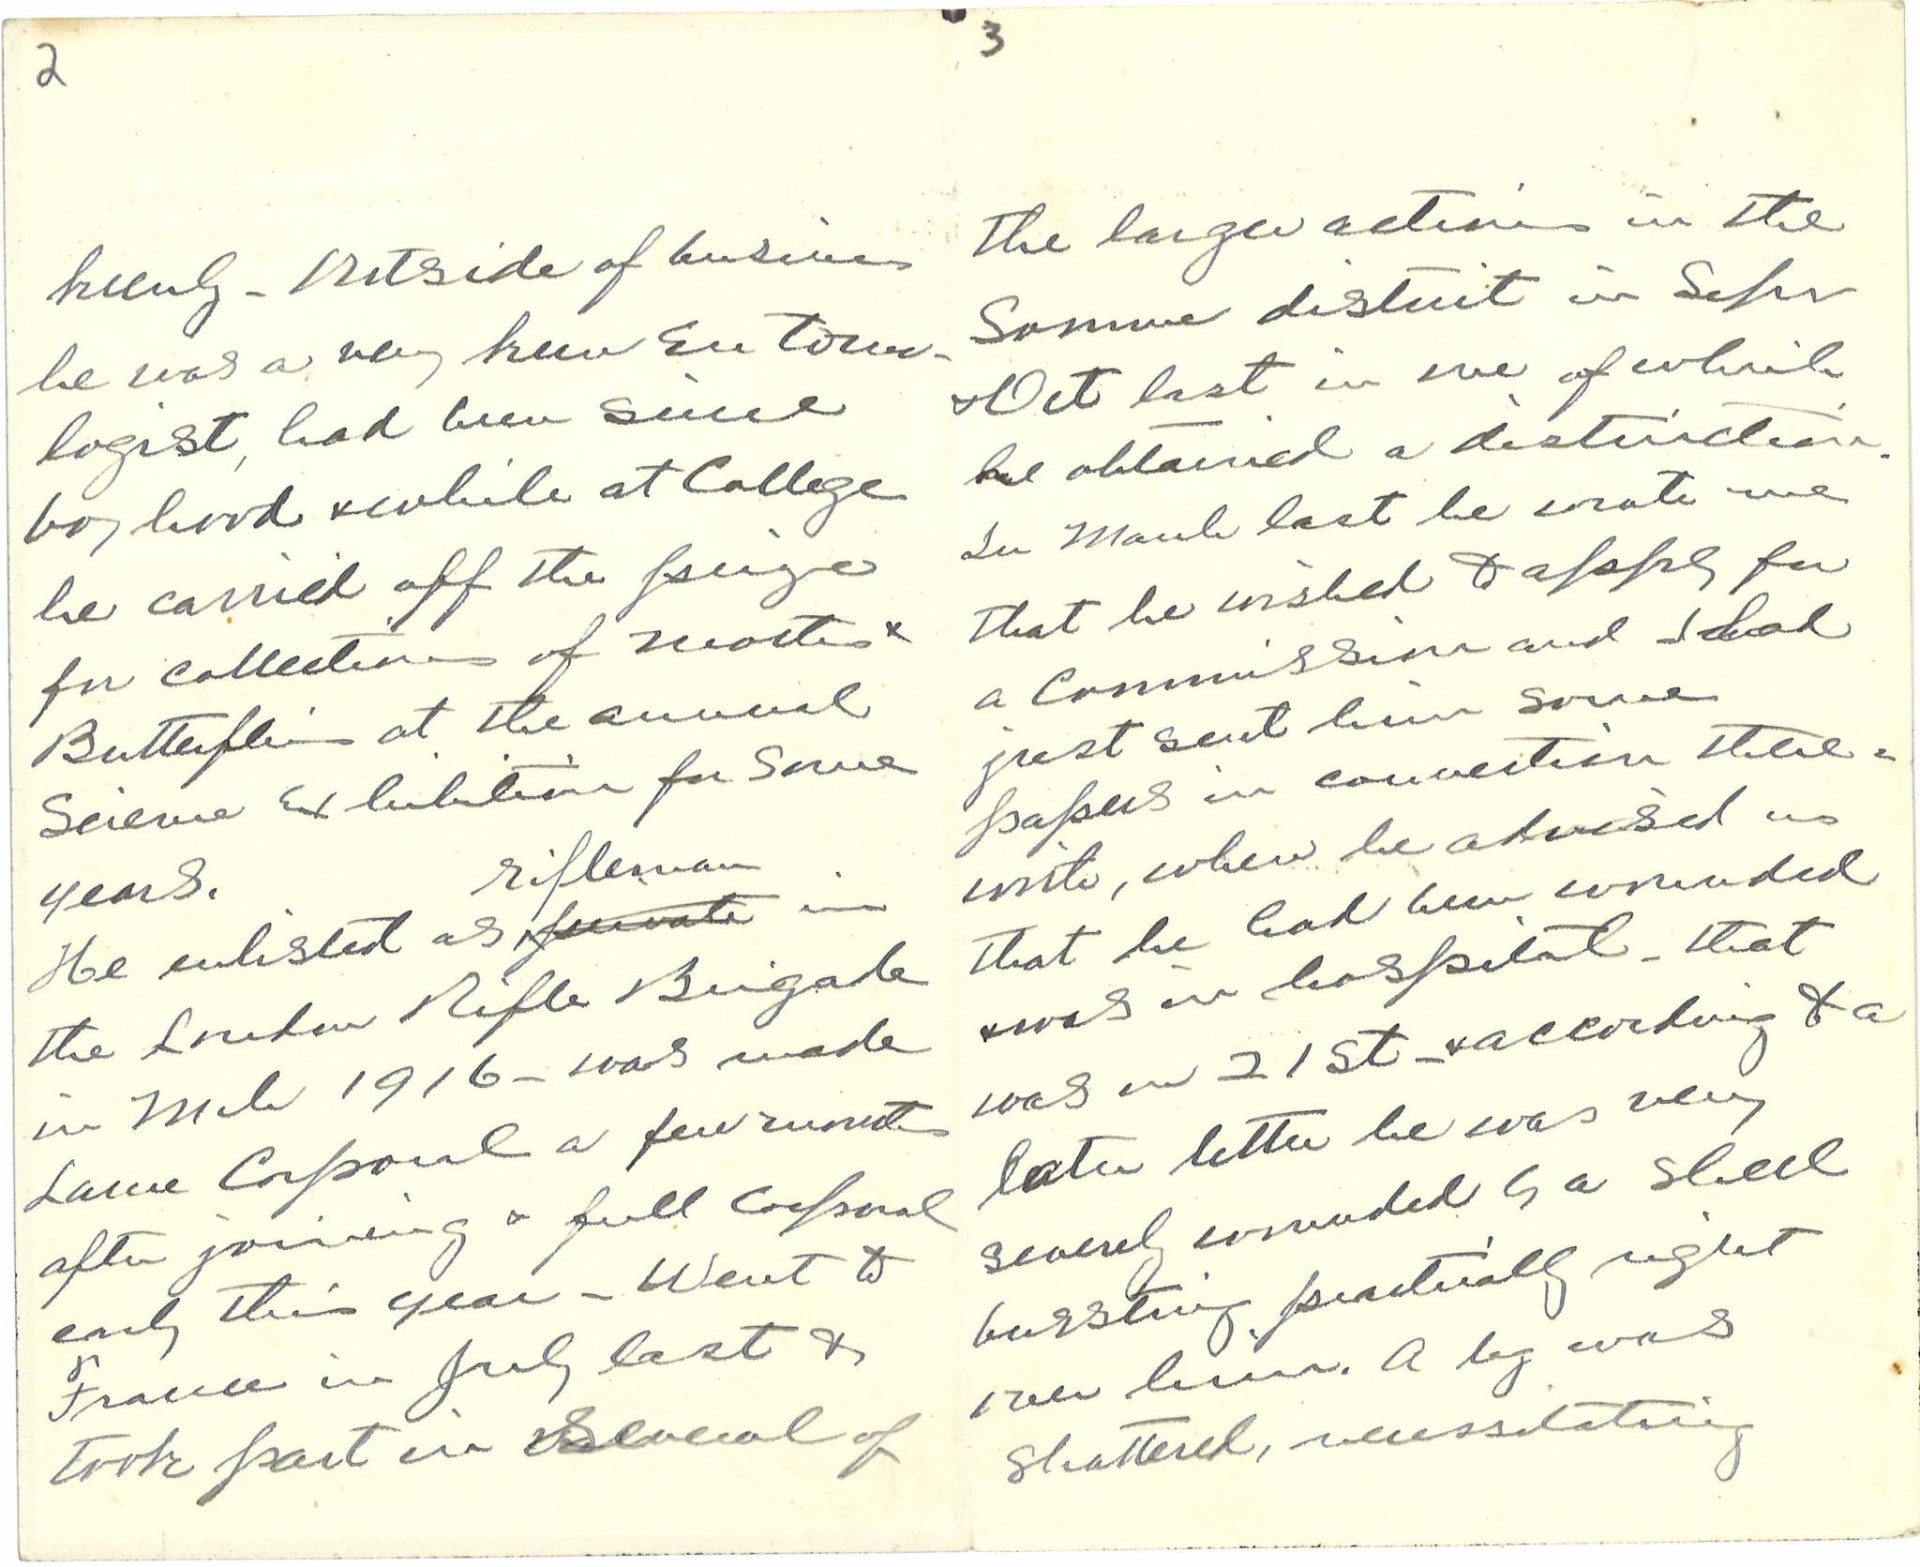 2
keenly - Outside of business
he was a very keen Entomo-
logist, had been since
boyhood & while at College
he carried off the prize
for collections of moths &
Butterflies at the annual
Science Exhibition for some
years.
rifleman
He enlisted as private in
the London Rifle Brigade
in Mch 1916 - was made
Lance Corporal a few months
after joining & full Corporal
early this year - Went to
France in July last &
took part in several of
3
the larger actions in the
Somme district in Sepr
& Oct last in one of which
he obtained a distinction.
In March last he wrote me
that he wished to apply for
a Commission and I had
just sent him some
papers in connection there-
with, when he advised us
that he had been wounded
& was in hospital - that
was on 21st - & according to a
later letter he was very
severely wounded by a shell
bursting practically right
over him. A leg was
shattered, necessitating